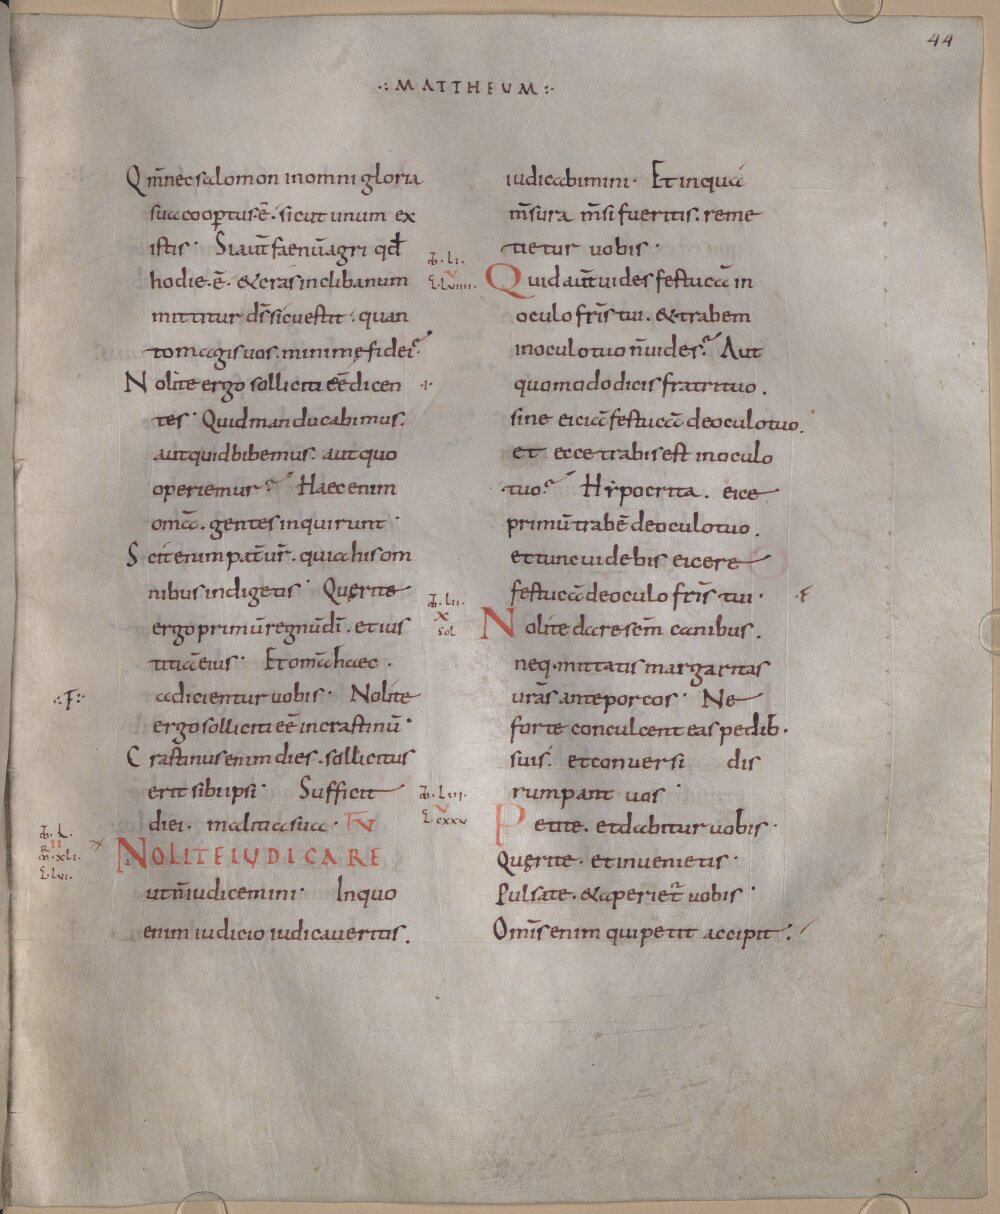 44
·: MATTHEUM :·
Qm̅nec salomon inomni gloria
suacoop̲tus·ē· sicut unum ex
istis· Siaut̅ faenu̅agri qđ
hodie·ē· &cras inclibanum
mittitur d̅s sicuestit · quan
tomagisuos. minimęfidei?
Nolite ergo solliciti e̅e̅ dicen
tes· Quidmanducabimus.
autquidbibemus. autquo
operiemur? Haecenim
om̅a. gentesinquirunt·
Scitenim pat̅ ur̅. quiahisom
nibus indigetis· Quęrite
ergoprimu̅regnu̅di̅. etius
titia̅eius· Etom̅ahaec.
adicienturuobis· Nolite
·:F:·
ergosolliciti e̅e̅ incrastinu̅·
Crastinusenim dies. sollicitus
erit sibiipsi· Sufficit
diei. malitiasua· FV
L.
II
m̅·xli.
L·lvi.
NOLITEIUDICARE
utn̅iudicemini· Inquo
enim iudicio iudicaueritis.
iudicabimini· Etinqua
m̅sura m̅si fueritis. reme
tietur uobis·
li.
L·lviiii.
Quidaut̅uides festuca̅ in
oculo fr̅is tui. &trabem
inoculotuo n̅uides? Aut
quomodo dicis fratrituo.
sine eicia̅ festuca̅ deoculotuo.
et ecce trabisest inoculo
tuo? Hypocrita. eice
primu̅ trabe̅ deoculotuo.
ettuncuidebis eicere
festuca̅ deoculo fr̅is tui·
lii.
X
sol
Nolite daresc̅m canibus.
neq·mittatis margaritas
ur̅as anteporcos· Ne
forte conculcent eas pedib·
suis. etconuersi dis
rumpant uos·
liii.
L·cxxv
Petite. etdabituruobis·
Quęrite· etinuenietis·
Pulsate. &aperiet̅ uobis·
Om̅isenim quipetit accipit: